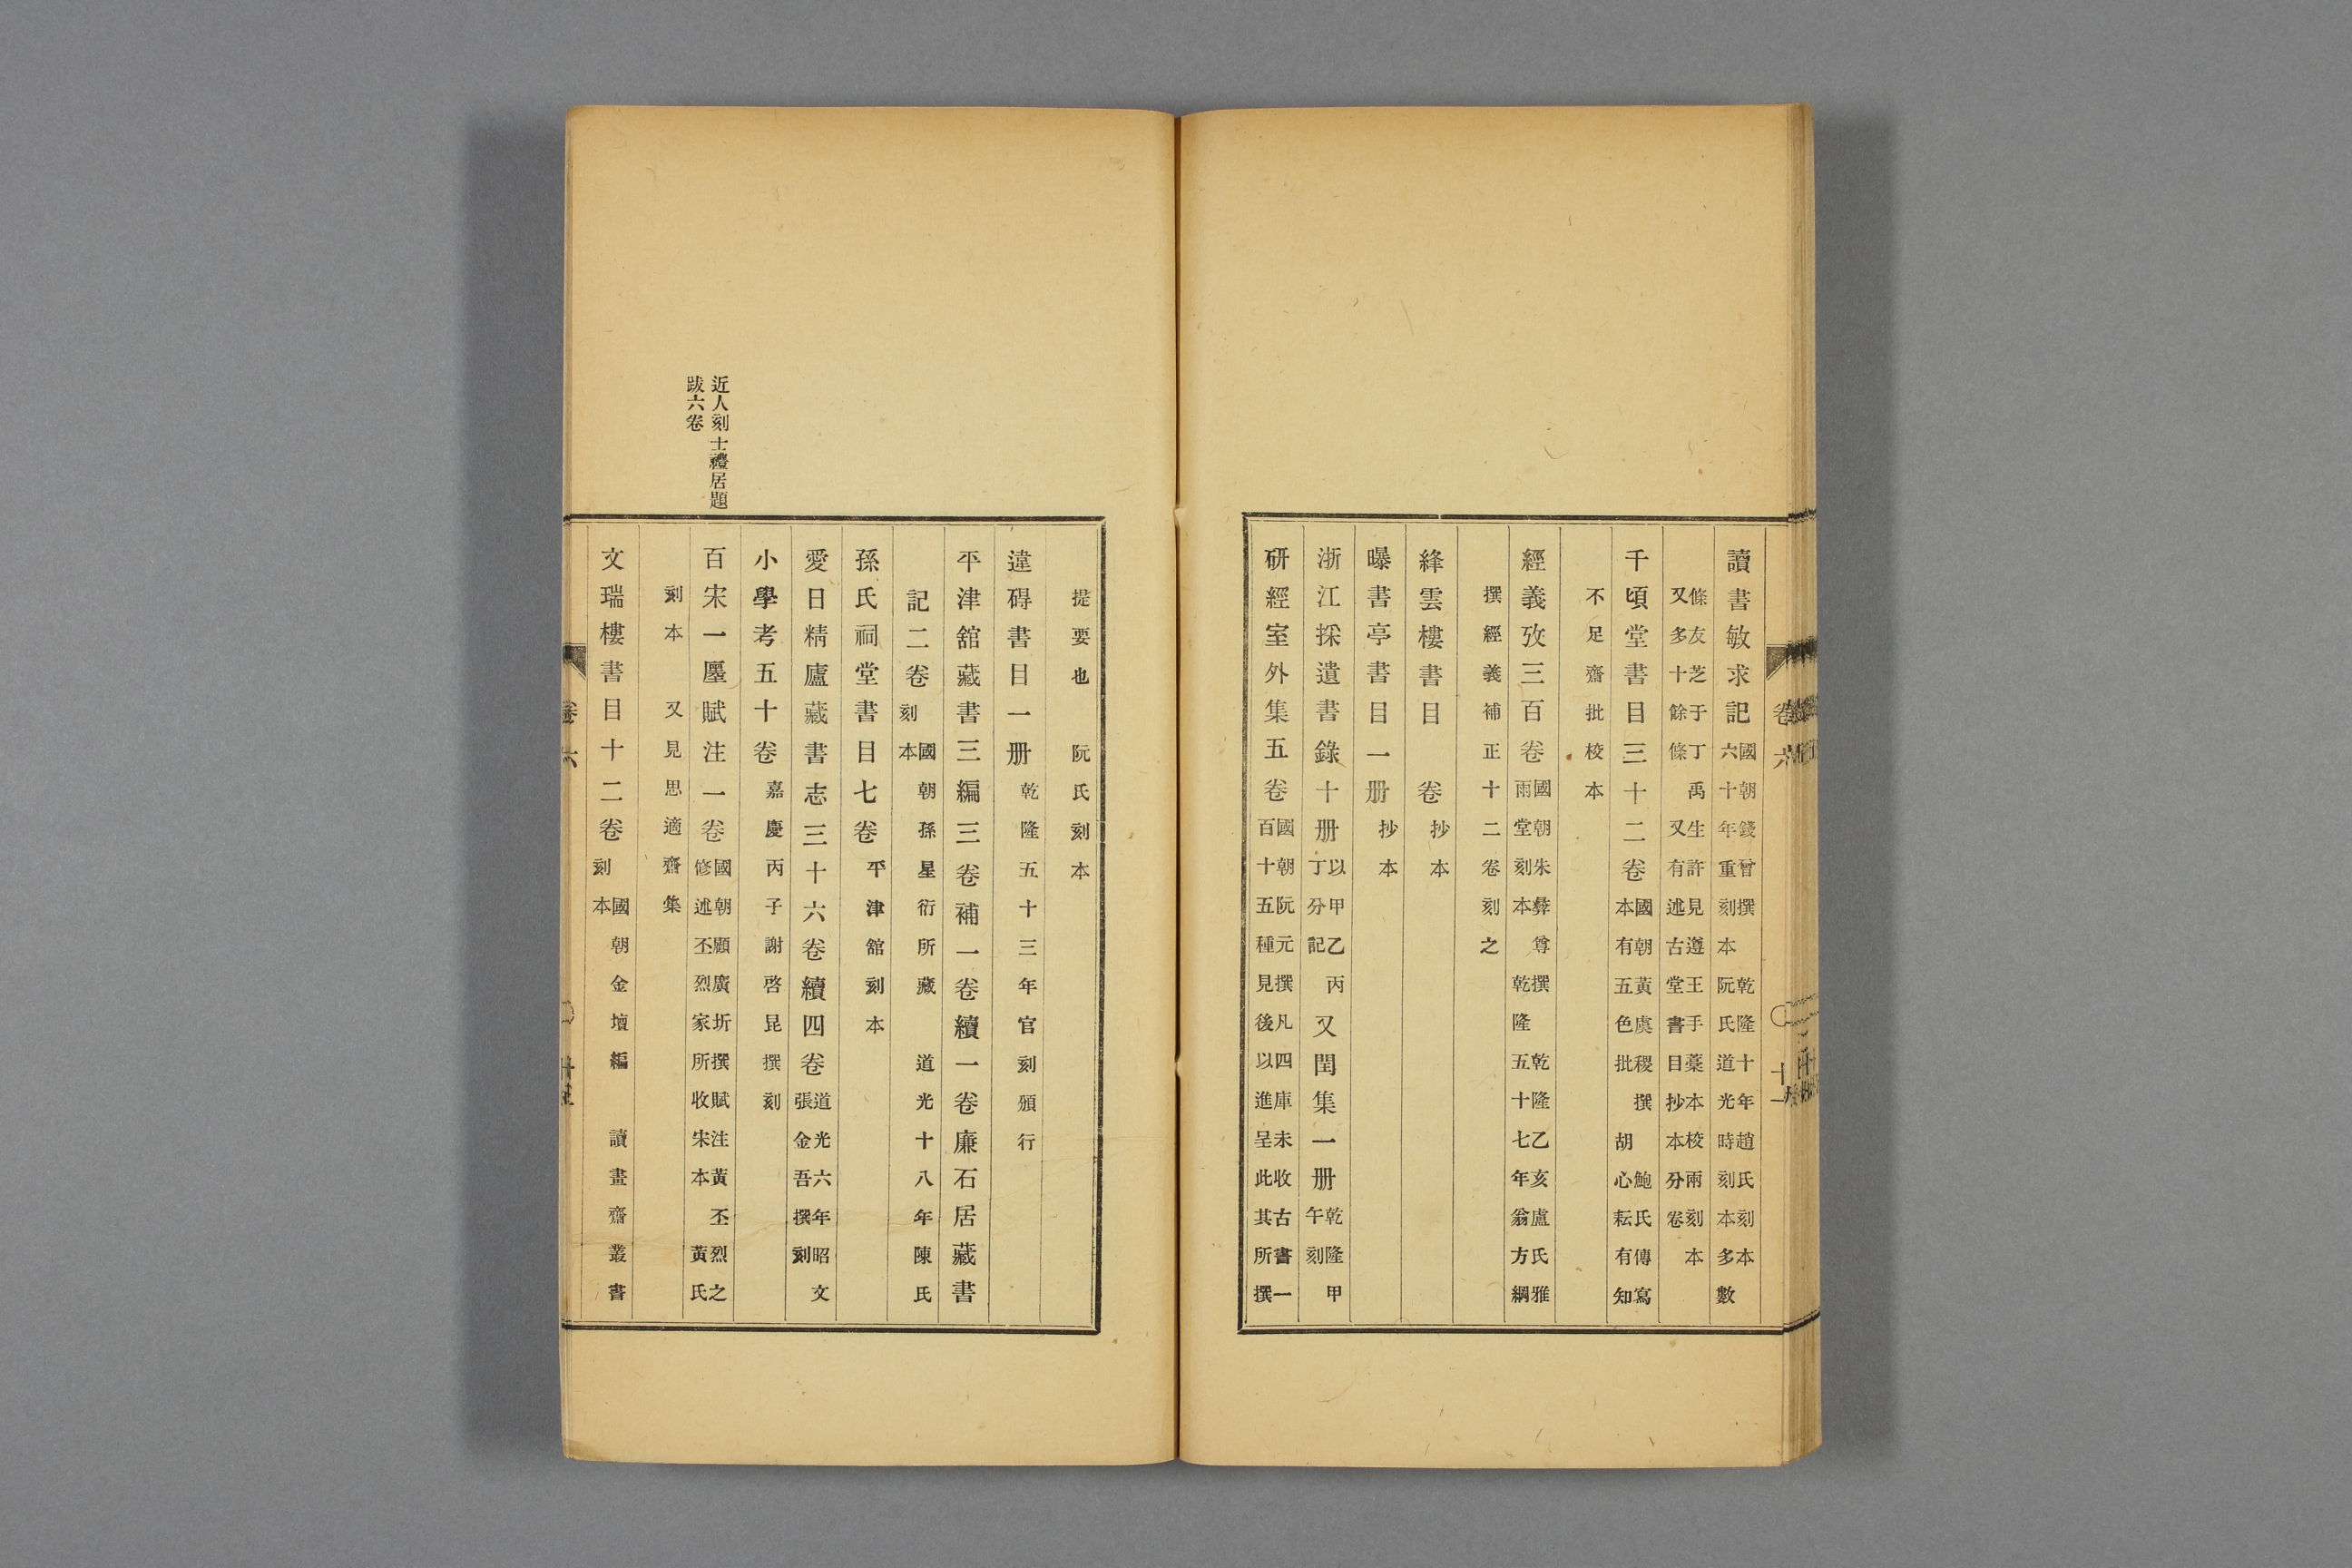 讀書敏求記國朝錢曾撰 乾隆十年趙氏刻本六十年重刻本 阮氏道光時刻本多數
條友芝于丁禹生許見遵王手藁本校兩刻本又多十餘條又有述古堂書目抄本分卷
千頃堂書目三十二卷國朝黃虞稷撰 鮑氏傳寫本有五色批 胡心耘有知
不足齋批校本
經義攷三百卷國朝朱彝尊撰 乾隆乙亥盧氏雅雨堂刻本 乾隆五十七年翁方綱
撰經義補正十二卷刻之
絳雲樓書目 卷抄本
曝書亭書目一册抄本
浙江採遺書錄十册以甲乙丙丁分記又閏集一册乾隆甲午刻
研經室外集五卷國朝阮元撰凡四庫未收古書一百十五種見後以進呈此其所撰
提要也 阮氏刻本
違碍書目一册乾隆五十三年官刻頒行
平津舘藏書三編三卷補一卷續一卷廉石居藏書
記二卷國朝孫星衍所藏 道光十八年陳氏刻本
孫氏祠堂書目七卷平津舘刻本
愛日精廬藏書志三十六卷續四卷道光六年昭文張金吾撰刻
小學考五十卷嘉慶丙子謝啓昆撰刻
近人刻士禮居題
跋六卷
百宋一廛賦注一卷國朝顧廣圻撰賦注黃丕烈之修述丕烈家所收宋本 黃氏
刻本 又見思適齋集
文瑞樓書目十二卷國朝金壇編 讀畫齋叢書刻本
卷六